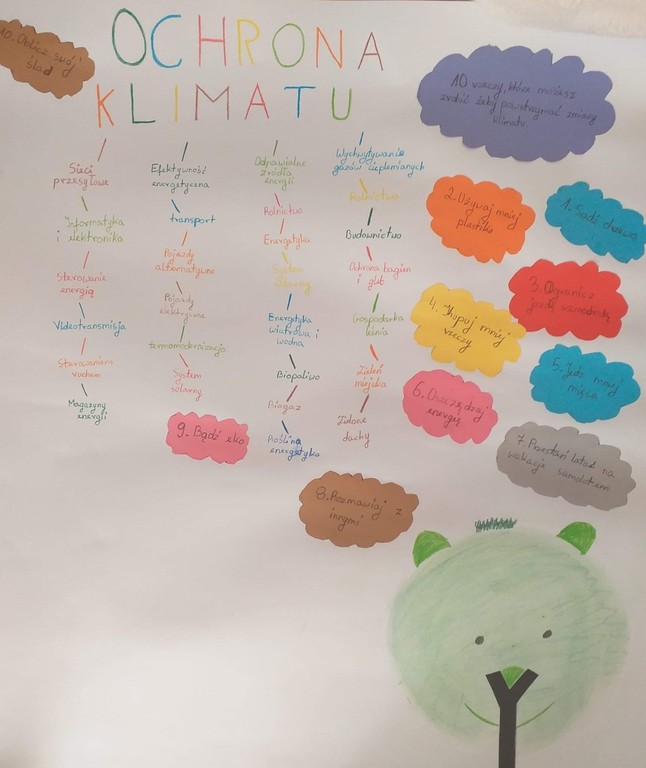 OCHRONA
KLIMATU
10. Oblicz swój
ślad
10 rzeczy, które możesz
zrobić żeby powstrzymać zmiany
klimatu.
Sieci
przesyłowe
Informatyka
i elektronika
Sterowanie
energią
Videotransmisja
Sterowaniem
ruchem
Magazyny
energii
Efektywność
energetyczna
transport
Pojazdy
alternatywne
Pojazdy
elektryczne
termomodernizacja
System
solarny
Odnawialne
źródła
energii
Rolnictwo
Energetyka
System
Energetyka
wiatrowa i
wodna
Biopaliwo
Biogaz
Roślina
energetyka
Wychwytywanie
gazów cieplarnianych
Rolnictwo
Budownictwo
Ochrona bagien
i gleb
Gospodarka
leśna
Zieleń
miejska
Zielone
dachy
1. Sadź drzewa
2. Używaj mniej
plastiku
3. Ogranicz
jazdę samochodem
4. Kupuj mniej
rzeczy
5. Jedz mniej
mięsa
6. Oszczędzaj
energię
7. Przestań latać na
wakacje samolotem
8. Rozmawiaj z
innymi
9. Bądź eko